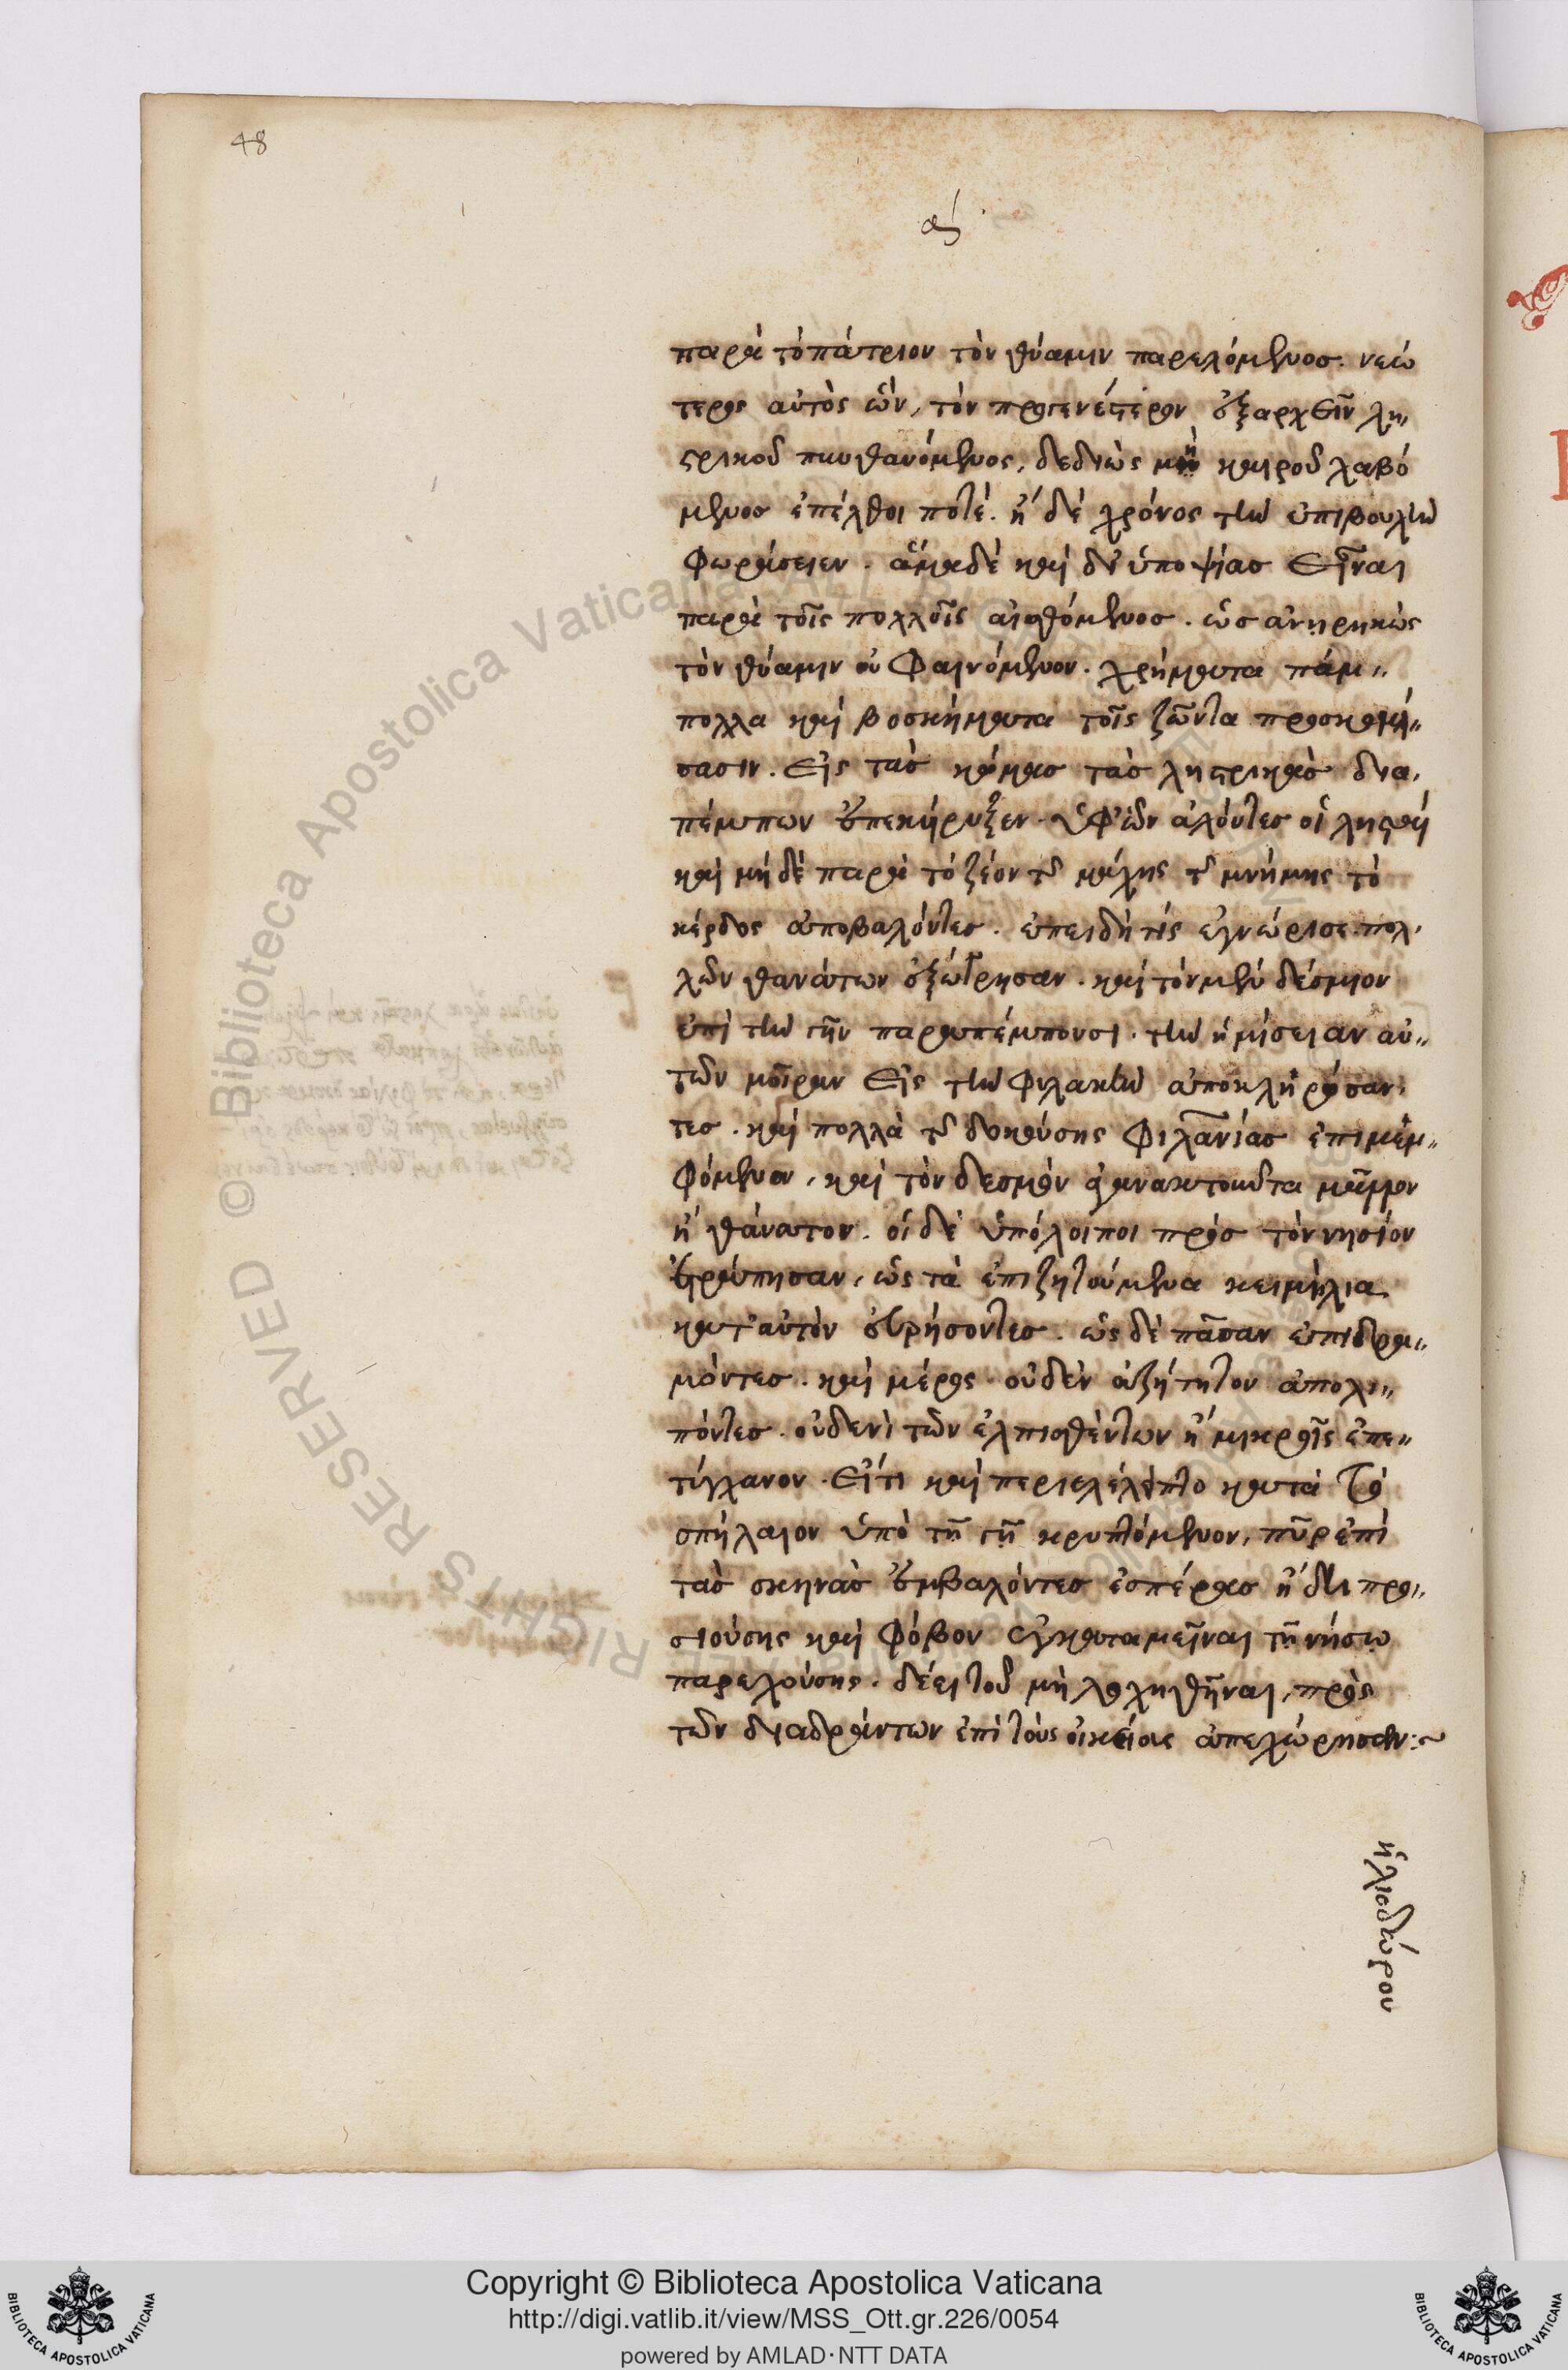 48
α΄
παρὰ τὸ πάτριον τὸν θύαμιν παρελόμενος. νεώ
τερος αὐτὸς ὢν, τὸν προγενέστερον ἐξαρχεῖν λη„
στρικοῦ πυνθανόμενος, δεδιὼς μὴ καιροῦ λαβό
μενος ἐπέλθοι ποτέ. ἢ δὲ χρόνος τὴν ἐπιβουλὴν
φωράσειεν. ἅμα δὲ καὶ δι' ὑποψίας εἶναι
παρὰ τοῖς πολλοῖς αἰσθόμενος. ὡς ἀνῃρηκὼς
τὸν θύαμιν οὐ φαινόμενον. χρήματα πάμ„
πολλα καὶ βοσκήματα τοῖς ζῶντα προσκομί„
σασιν. εἰς τὰς κώμας τὰς ληστρικὰς δια„
πέμπων ἐπεκήρυξεν. ὑφ' ὧν ἁλόντες οἱ λησταὶ
καὶ μὴ δὲ παρὰ τὸ ζέον τῆς μάχης τῆς μνήμης τὸ
κέρδος ἀποβαλόντες. ἐπειδή τις ἐγνώρισε πολ„
λῶν θανάτων ἐξώγρησαν. καὶ τὸν μὲν δέσμιον
ἐπὶ τὴν γῆν παραπέμπουσι. τὴν ἡμίσειαν αὐ„
τῶν μοῖραν εἰς τὴν φυλακὴν ἀποκληρώσαν„
τες. καὶ πολλὰ τῆς δοκούσης φιλανίας ἐπιμεμ„
φόμενον, καὶ τὸν δεσμὸν ἀγανακτοῦντα μᾶλλον
ἢ θάνατον. οἱ δὲ ὑπόλοιποι πρὸς τὸν νησίον
ἐτράπησαν, ὡς τὰ ἐπιζητούμενα κειμήλια
κατ' αὐτὸν εὑρήσοντες. ὡς δὲ πᾶσαν ἐπιδρα„
μόντες. καὶ μέρος οὐδὲν ἀζήτητον ἀπολι„
πόντες. οὐδενὶ τῶν ἐλπισθέντων ἢ μικροῖς ἐπε„
τύγχανον. εἴ τι καὶ περιελέλειπτο κατὰ τὸ
σπήλαιον ὑπὸ τῇ γῇ κρυπτόμενον, πῦρ ἐπὶ
τὰς σκηνὰς ἐμβαλόντες ἑσπέρας ἤδη προ„
σιούσης καὶ φόβον ἐγκαταμεῖναι τῇ νήσῳ
παρεχούσης. δέει τοῦ μὴ λοχηθῆναι, πρὸς
τῶν διαδράντων ἐπὶ τοὺς οἰκείους ἀπεχώρησαν:~
ἡλιοδώρου
Copyright © Biblioteca Apostolica Vaticana
http://digi.vatlib.it/view/MSS_Ott.gr.226/0054
powered by AMLAD·NTT DATA
BIBLIOTECA APOSTOLICA VATICANA
BIBLIOTECA APOSTOLICA VATICANA